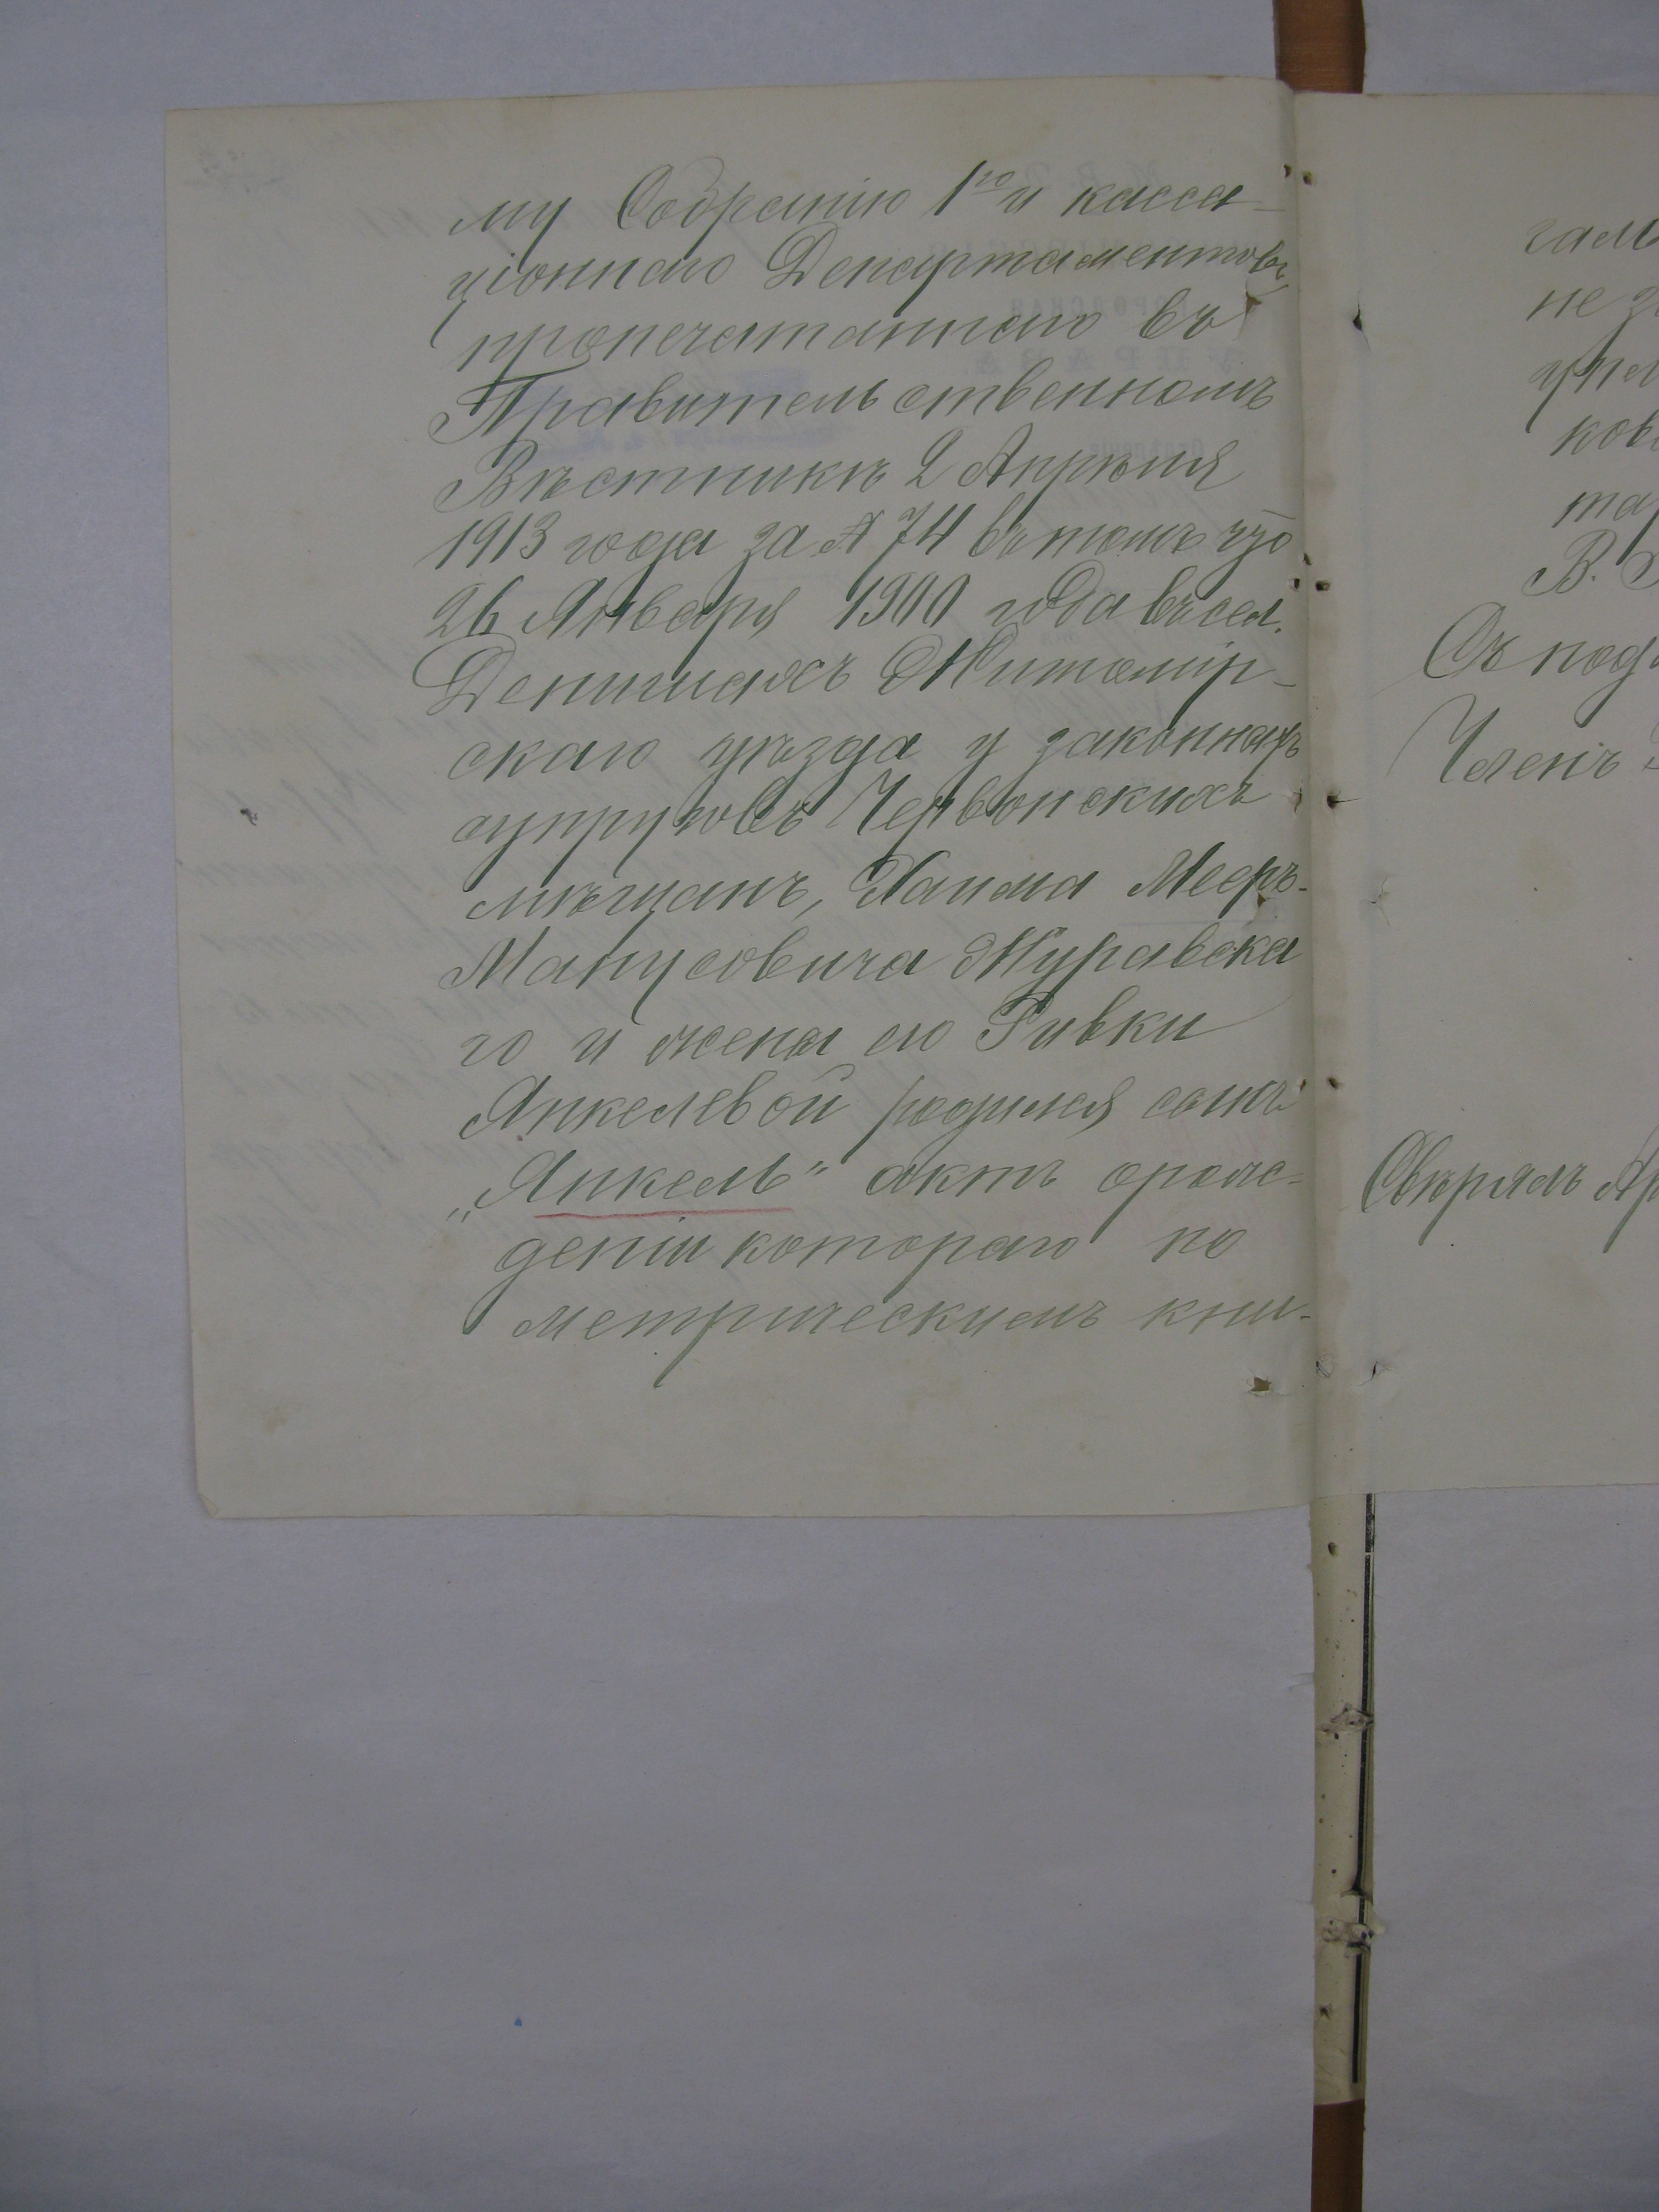 му Собранію 1го и касса-
ціоннаго Департаментовъ
пропечатаннаго въ
Правительственномъ
Вѣстникѣ 2 Апрѣля
1913 года за № 74 въ томъ что
26 Января 1900 года въ сел.
Денишахъ Житомір-
скаго уѣзда у законныхъ
супруговъ Червонскихъ
мѣщанъ, Хаима Мееръ-
Манусовича Журавска
го и жены его Ривки
Янкелевой родился сынъ
„Янкель" актъ о рож-
деніи котораго по
метрическимъ кни-
гамъ
не
ков
та
В.
Съ под
Членъ
Свѣрялъ